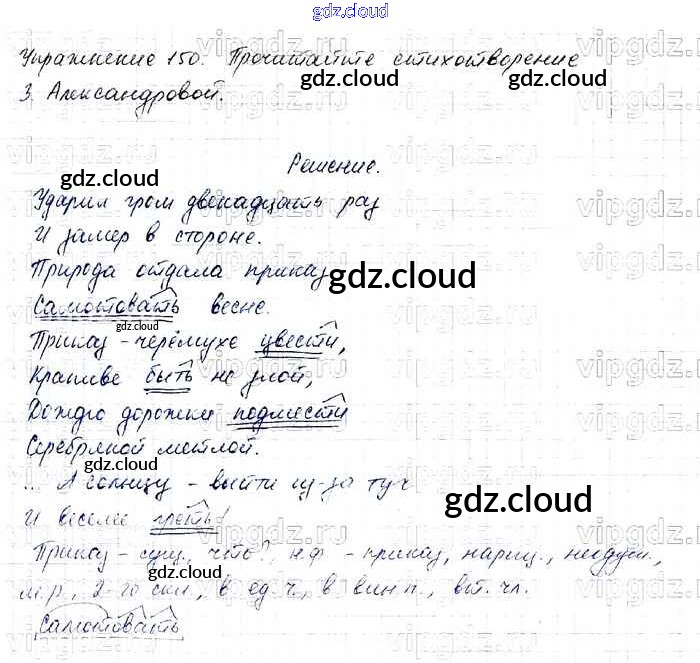 gdz.cloud
Упражнение 150. Прочитайте стихотворение
gdz.cloud
З. Александровой.
gdz.cloud
Решение.
gdz.cloud
Ударил гром двенадцать раз
И замер в стороне.
Природа отдала приказ
gdz.cloud
Самотовать весне.
gdz.cloud
Приказ - черёмухе цвести,
Крапиве быть не злой,
Дождю дорожки подмести
Серебряной метлой.
gdz.cloud
... А солнцу - выйти из-за туч
gdz.cloud
И веселее греть!
Приказ - сущ., что?, н.ф - приказ, нариц., неодуш.,
gdz.cloud
м.р., 2-го скл., в ед.ч, в вин.п., вт. чл.
Самотовать
vipgdz.ru